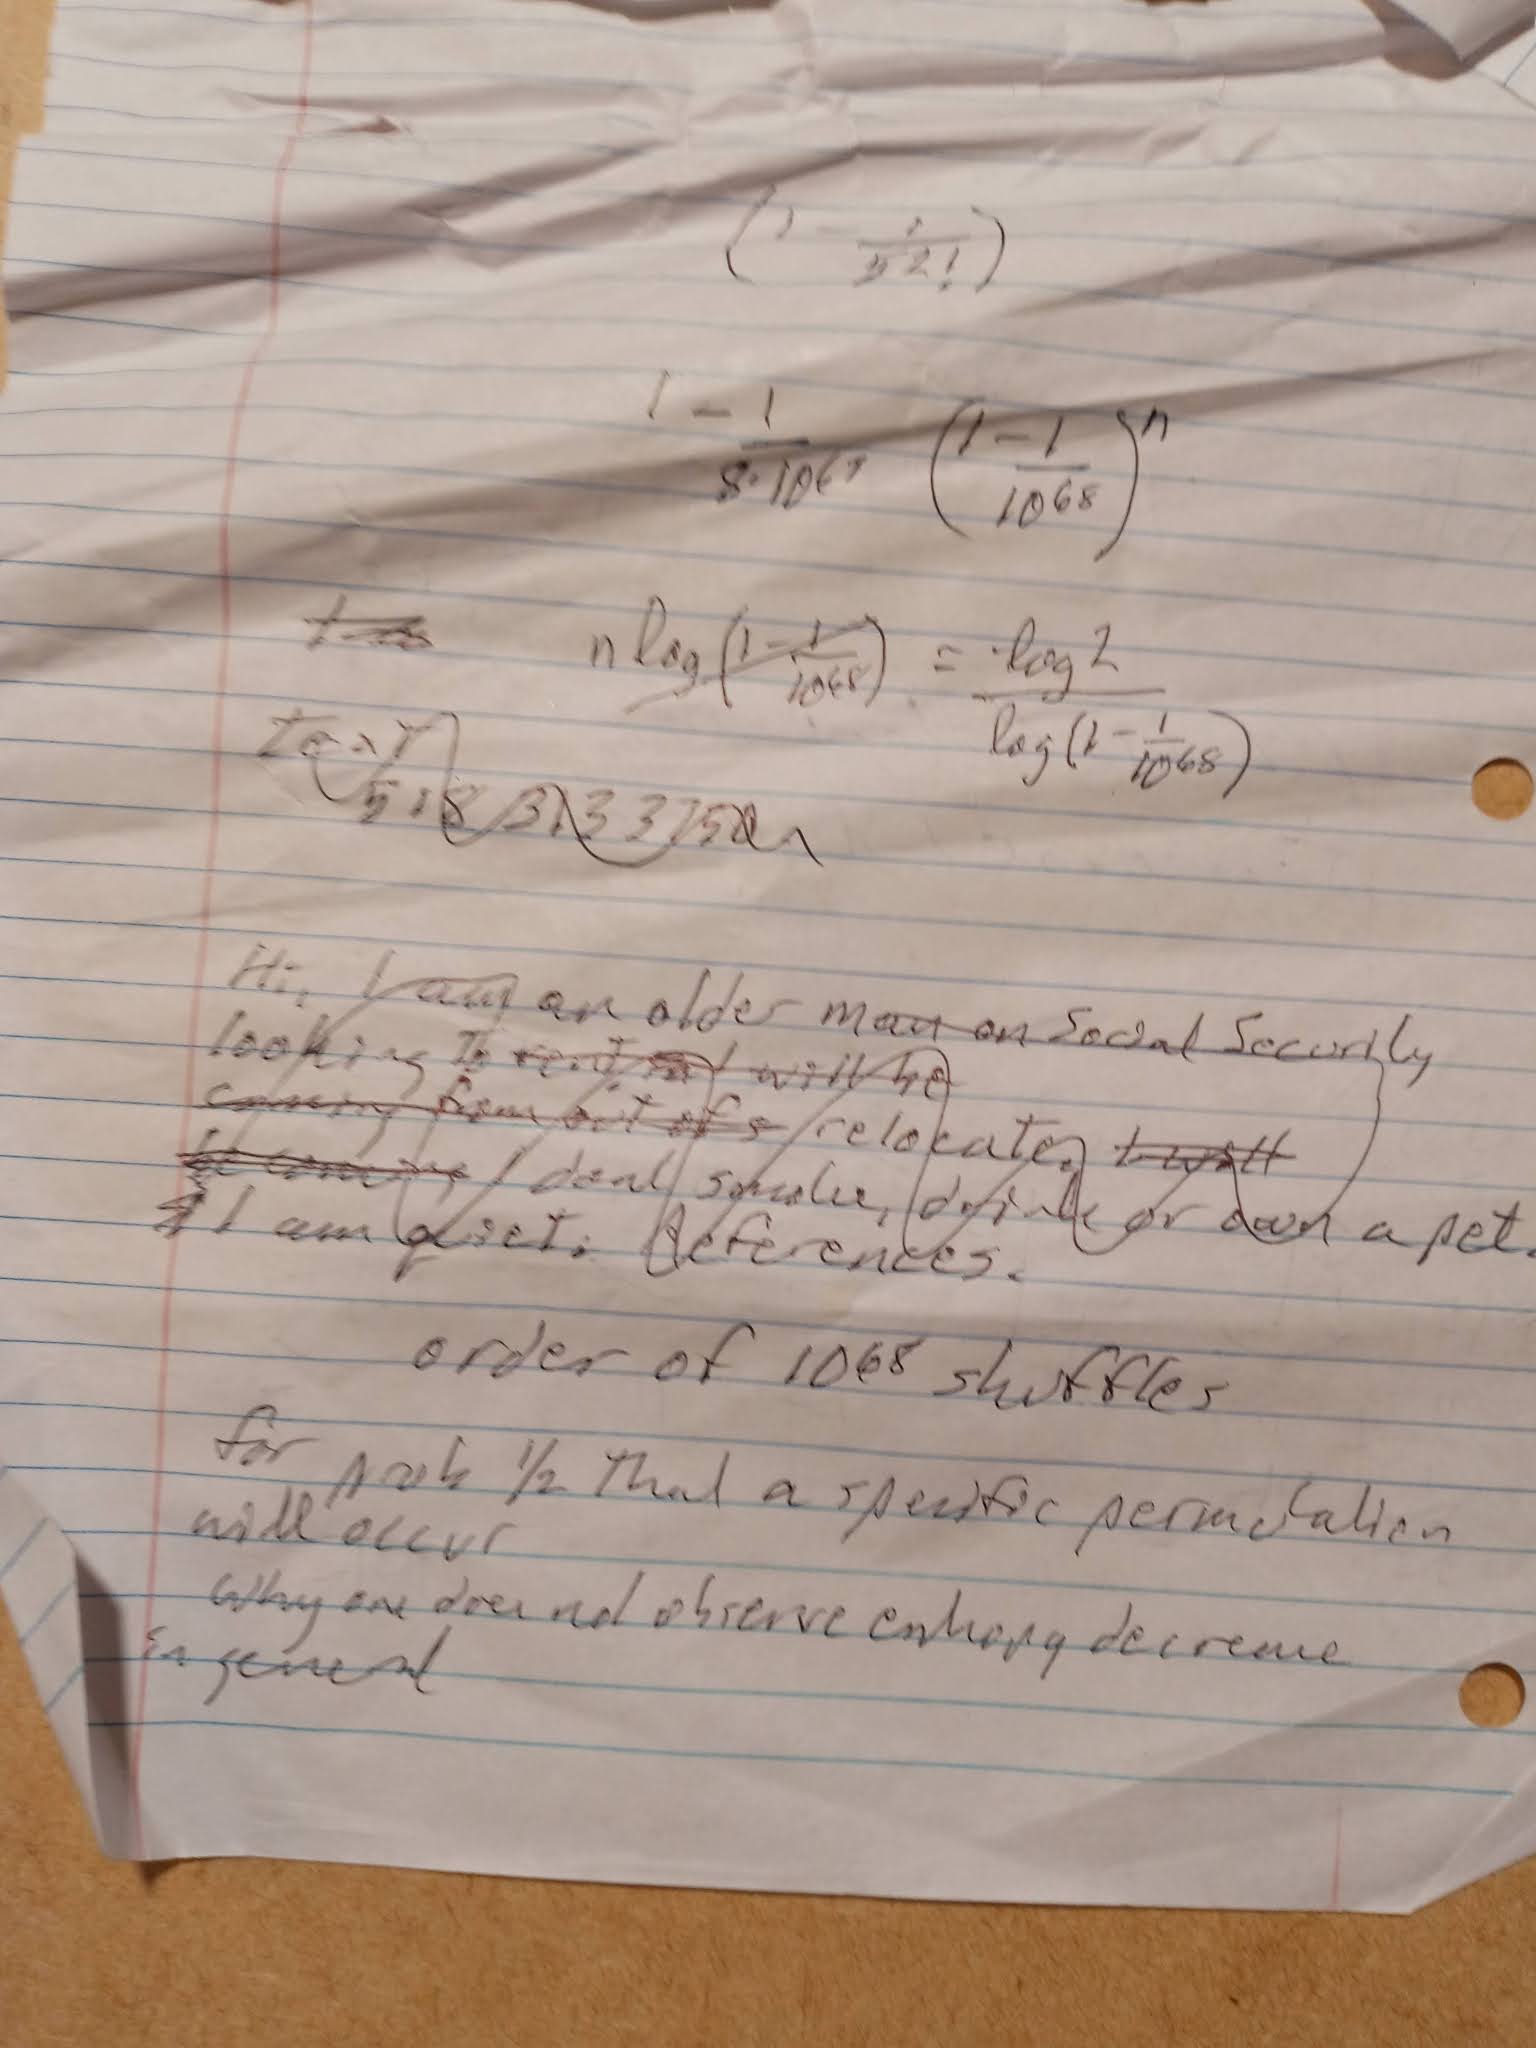 (1 - 1/52!)
1 - 1/8·10⁶⁷ (1 - 1/10⁶⁸)ⁿ
n log(1 - 1/10⁶⁸) = -log 2 / log(1 - 1/10⁶⁸)
Hi, I am an older man on Social Security
looking to rent in I will be
coming from out of s relocate. I will
be coming I dont smoke, drink or own a pet.
I am quiet. References.
order of 10⁶⁸ shuffles
for prob 1/2 that a specific permutation
will occur
Why one does not observe entropy decrease
in general